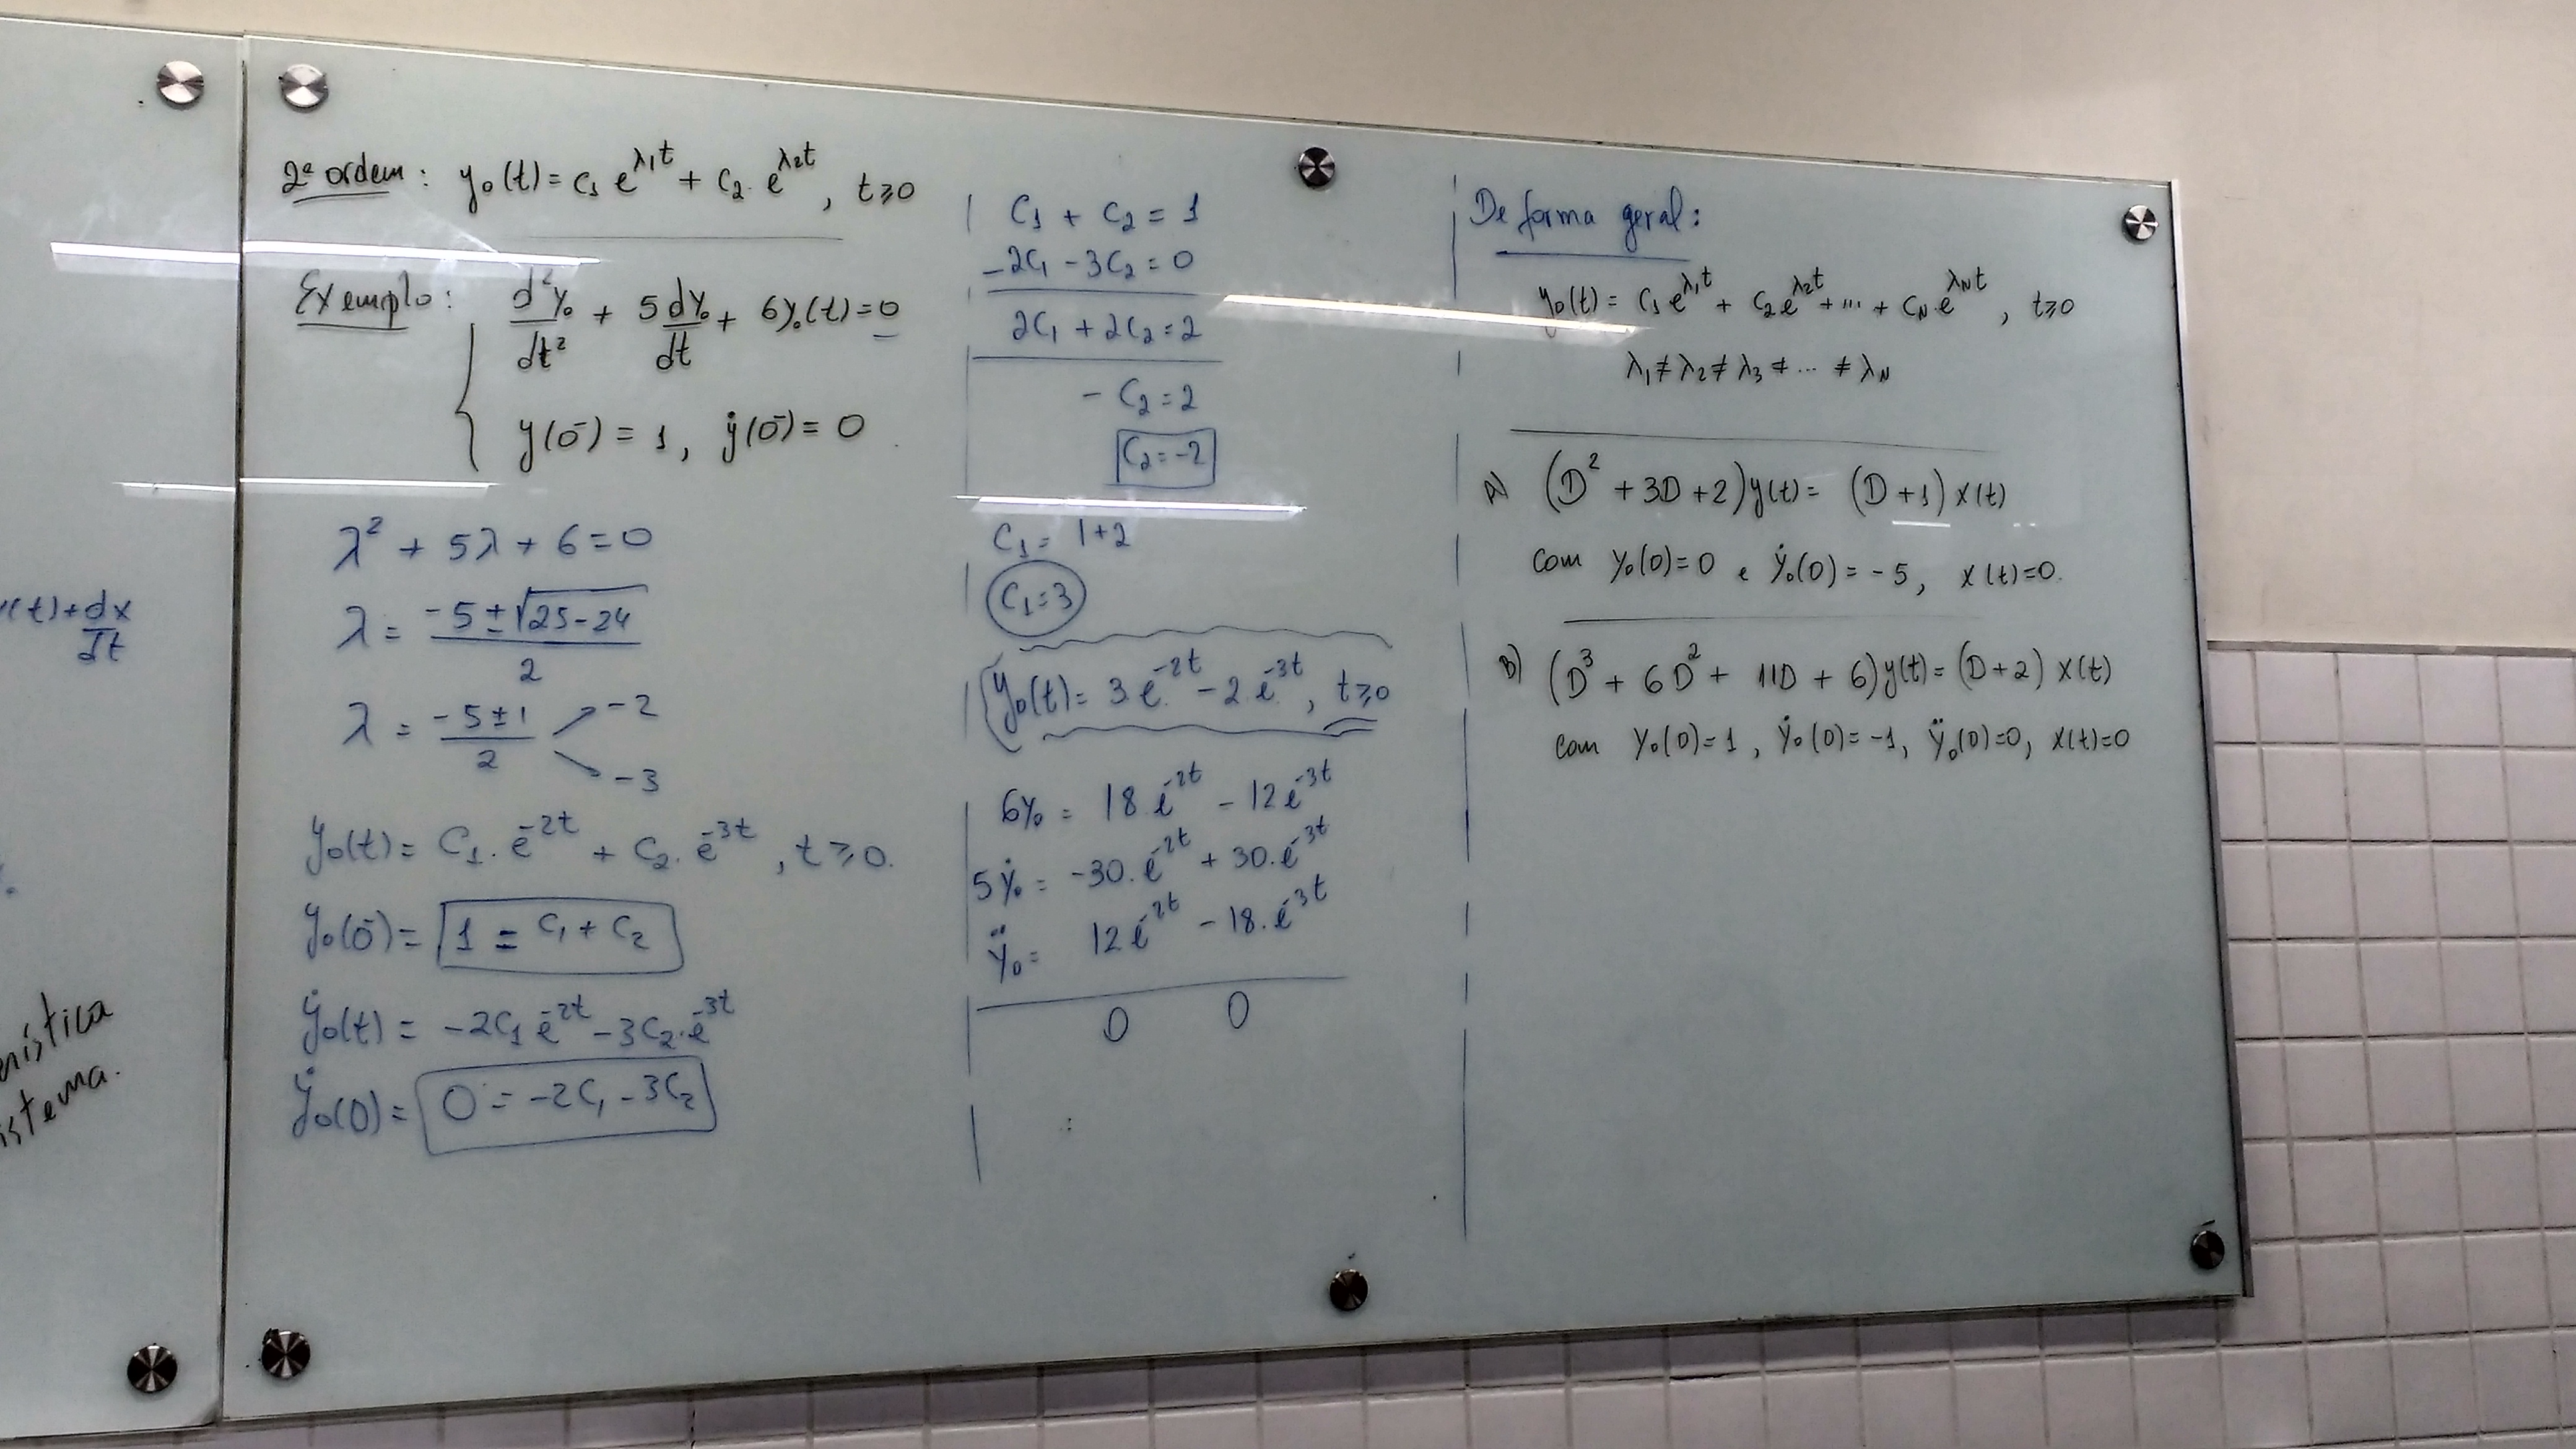 (t) + dx
dt
2ª ordem: y₀(t) = c₁ e^λ₁t + c₂. e^λ₂t, t≥0
Exemplo: d²y₀/dt² + 5 dy₀/dt + 6y₀(t) = 0
y(0⁻) = 1, ẏ(0⁻) = 0
λ² + 5λ + 6 = 0
λ = (-5 ± √25-24)/2
λ = (-5 ± 1)/2 → -2
→ -3
y₀(t) = C₁. e^-2t + C₂. e^-3t, t≥0.
y₀(0⁻) = 1 = C₁ + C₂
ẏ₀(t) = -2C₁ e^-2t - 3C₂. e^-3t
ẏ₀(0) = 0 = -2C₁ - 3C₂
C₁ + C₂ = 1
-2C₁ - 3C₂ = 0
2C₁ + 2C₂ = 2
- C₂ = 2
C₂ = -2
C₁ = 1+2
C₁ = 3
y₀(t) = 3 e^-2t - 2 e^-3t, t≥0
6y₀ = 18 e^-2t - 12 e^-3t
5ẏ₀ = -30. e^-2t + 30. e^-3t
ÿ₀ = 12 e^-2t - 18. e^-3t
0 0
De forma geral:
y₀(t) = C₁ e^λ₁t + C₂ e^λ₂t + ... + C_N e^λ_Nt, t≥0
λ₁ ≠ λ₂ ≠ λ₃ ≠ ... ≠ λ_N
A) (D² + 3D + 2) y(t) = (D + 1) x(t)
com y₀(0) = 0 e ẏ₀(0) = -5, x(t) = 0.
B) (D³ + 6D² + 11D + 6) y(t) = (D + 2) x(t)
com y₀(0) = 1, ẏ₀(0) = -1, ÿ₀(0) = 0, x(t) = 0